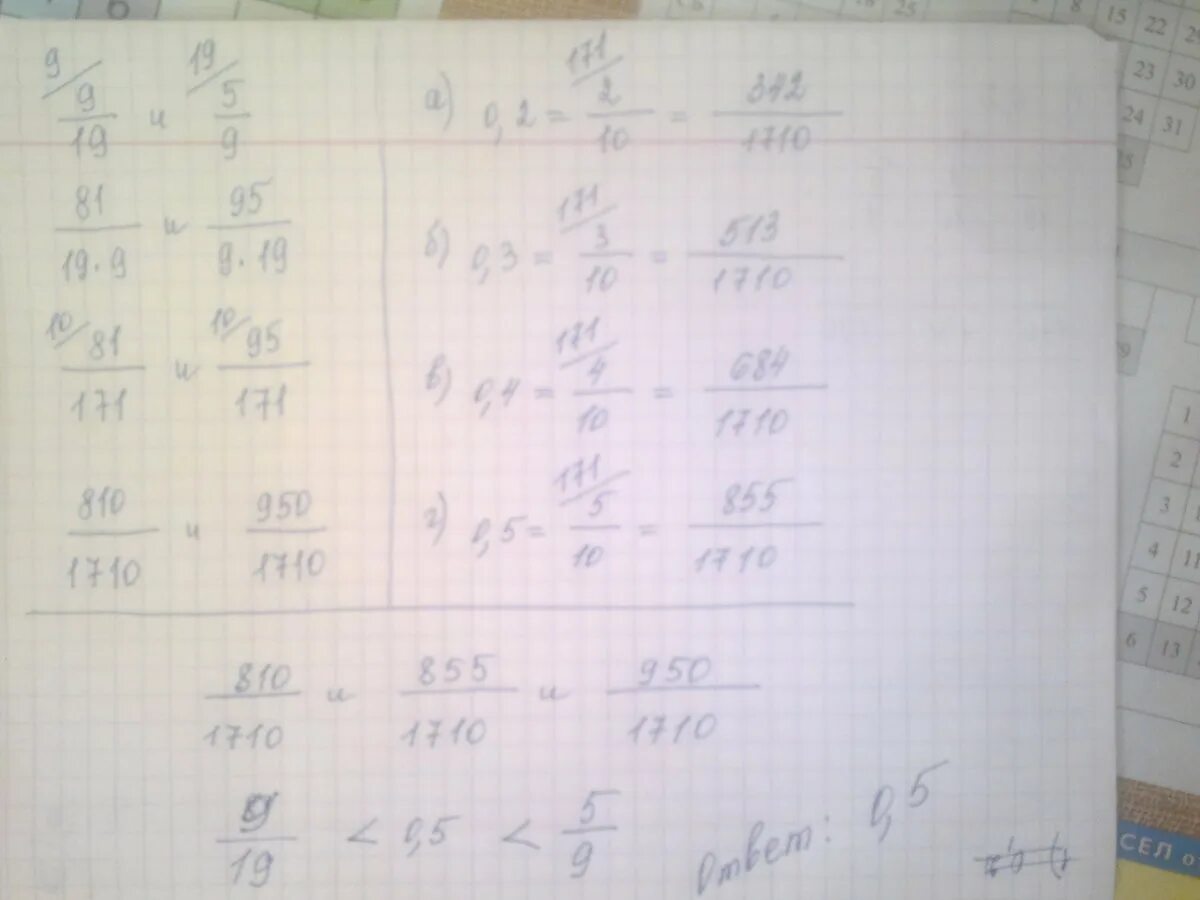 9/ 9/19 и 19/ 5/9
81/19·9 и 95/9·19
10/ 81/171 и 10/ 95/171
810/1710 и 950/1710
а) 0,2 = 171/ 2/10 = 342/1710
б) 0,3 = 171/ 3/10 = 513/1710
в) 0,4 = 171/ 4/10 = 684/1710
г) 0,5 = 171/ 5/10 = 855/1710
810/1710 и 855/1710 и 950/1710
9/19 < 0,5 < 5/9
Ответ: 0,5
6
25
8 15 22 29
23 30
24 31
1
2
3
4 11
5 12
6 13
СЕЛ